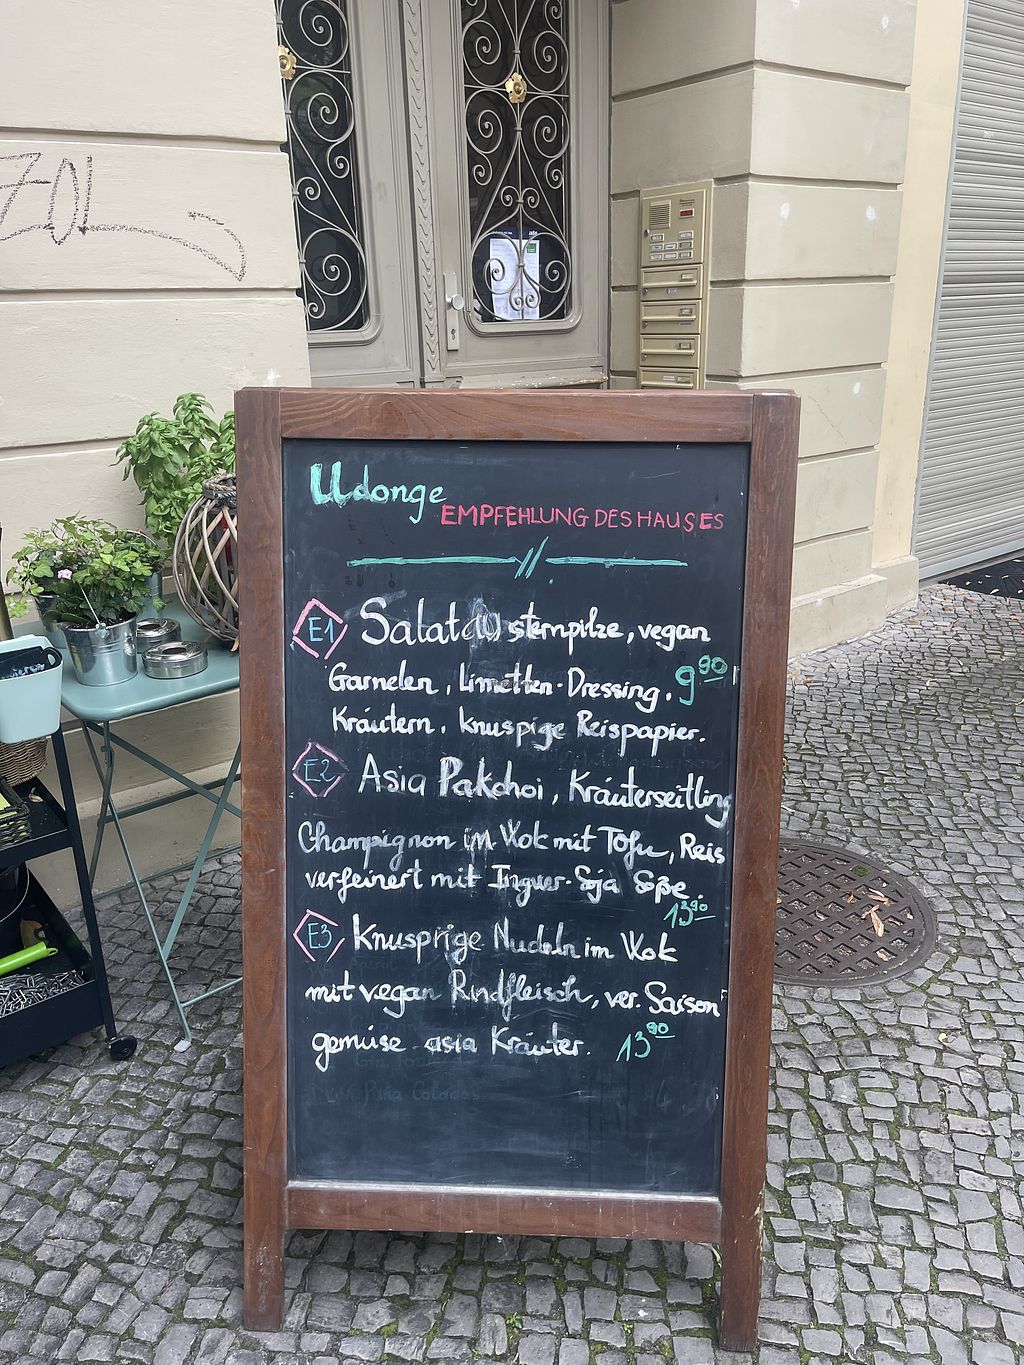 ZOL
Udonge
EMPFEHLUNG DES HAUSES
E1 Salat Austernpilze, vegan
Garnelen, Limetten-Dressing, 9 90
Kräutern, knuspige Reispapier.
E2 Asia Pakchoi, Kräuterseitling
Champignon im Wok mit Tofu, Reis
verfeinert mit Ingwer-Soja Soße.
13 90
E3 Knusprige Nudeln im Wok
mit vegan Rindfleisch, ver. Saison
gemüse asia Kräuter. 13 90
Pina Coladas